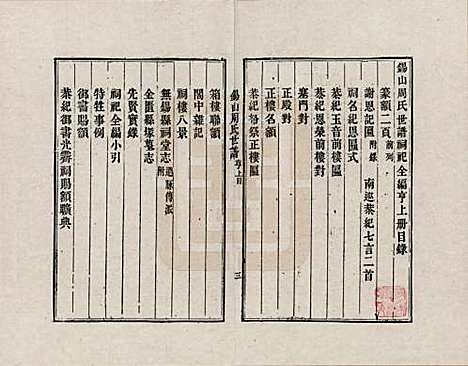 錫山周氏世譜祠祀全編亨上册目錄
篆額二頁 前列
謝恩記匾 附錄 南巡恭紀七言二首
祠名紀恩區式
恭紀玉音前樓區
恭紀恩榮前樓對
塞門對
正殿對
正樓名額
恭紀恪祭正樓區
錫山周氏世譜 亨上目 三
箱樓聯額
閣中雜記
祠樓八景
無錫縣祠堂志
金匱縣塚墓志
先賢實錄
祠祀全編小引
特牲事例
御書賜額
恭紀御書光霽祠賜額曠典